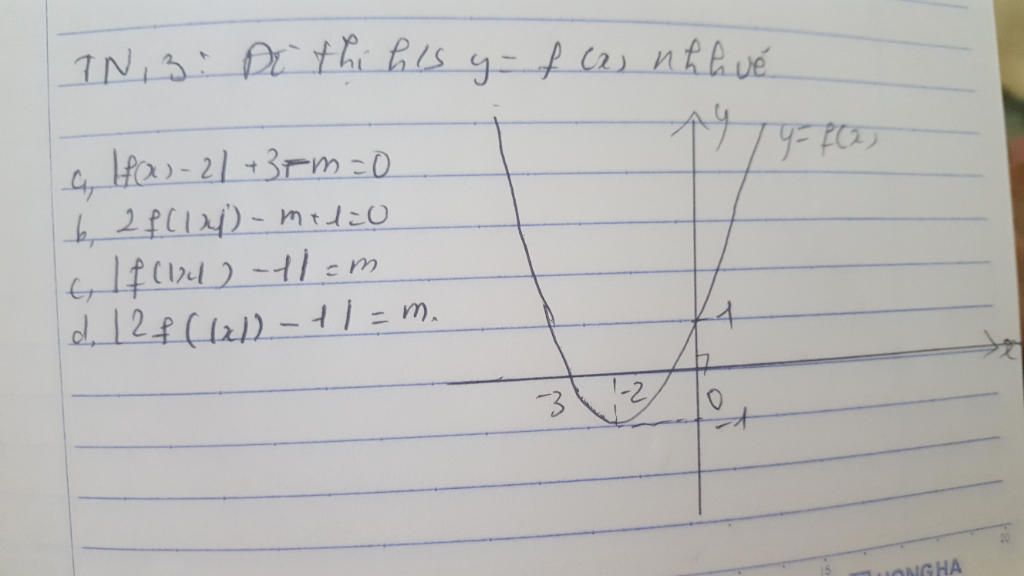 TN,3: Đồ thị h/s y = f(x) như vẽ
a, |f(x) - 2| + 3 - m = 0
b, 2f(|x|) - m + 1 = 0
c, |f(|x|) - 1| = m
d, |2f(|x|) - 1| = m.
y
y = f(x)
1
x
-3
-2
0
-1
15
20
HONG HA